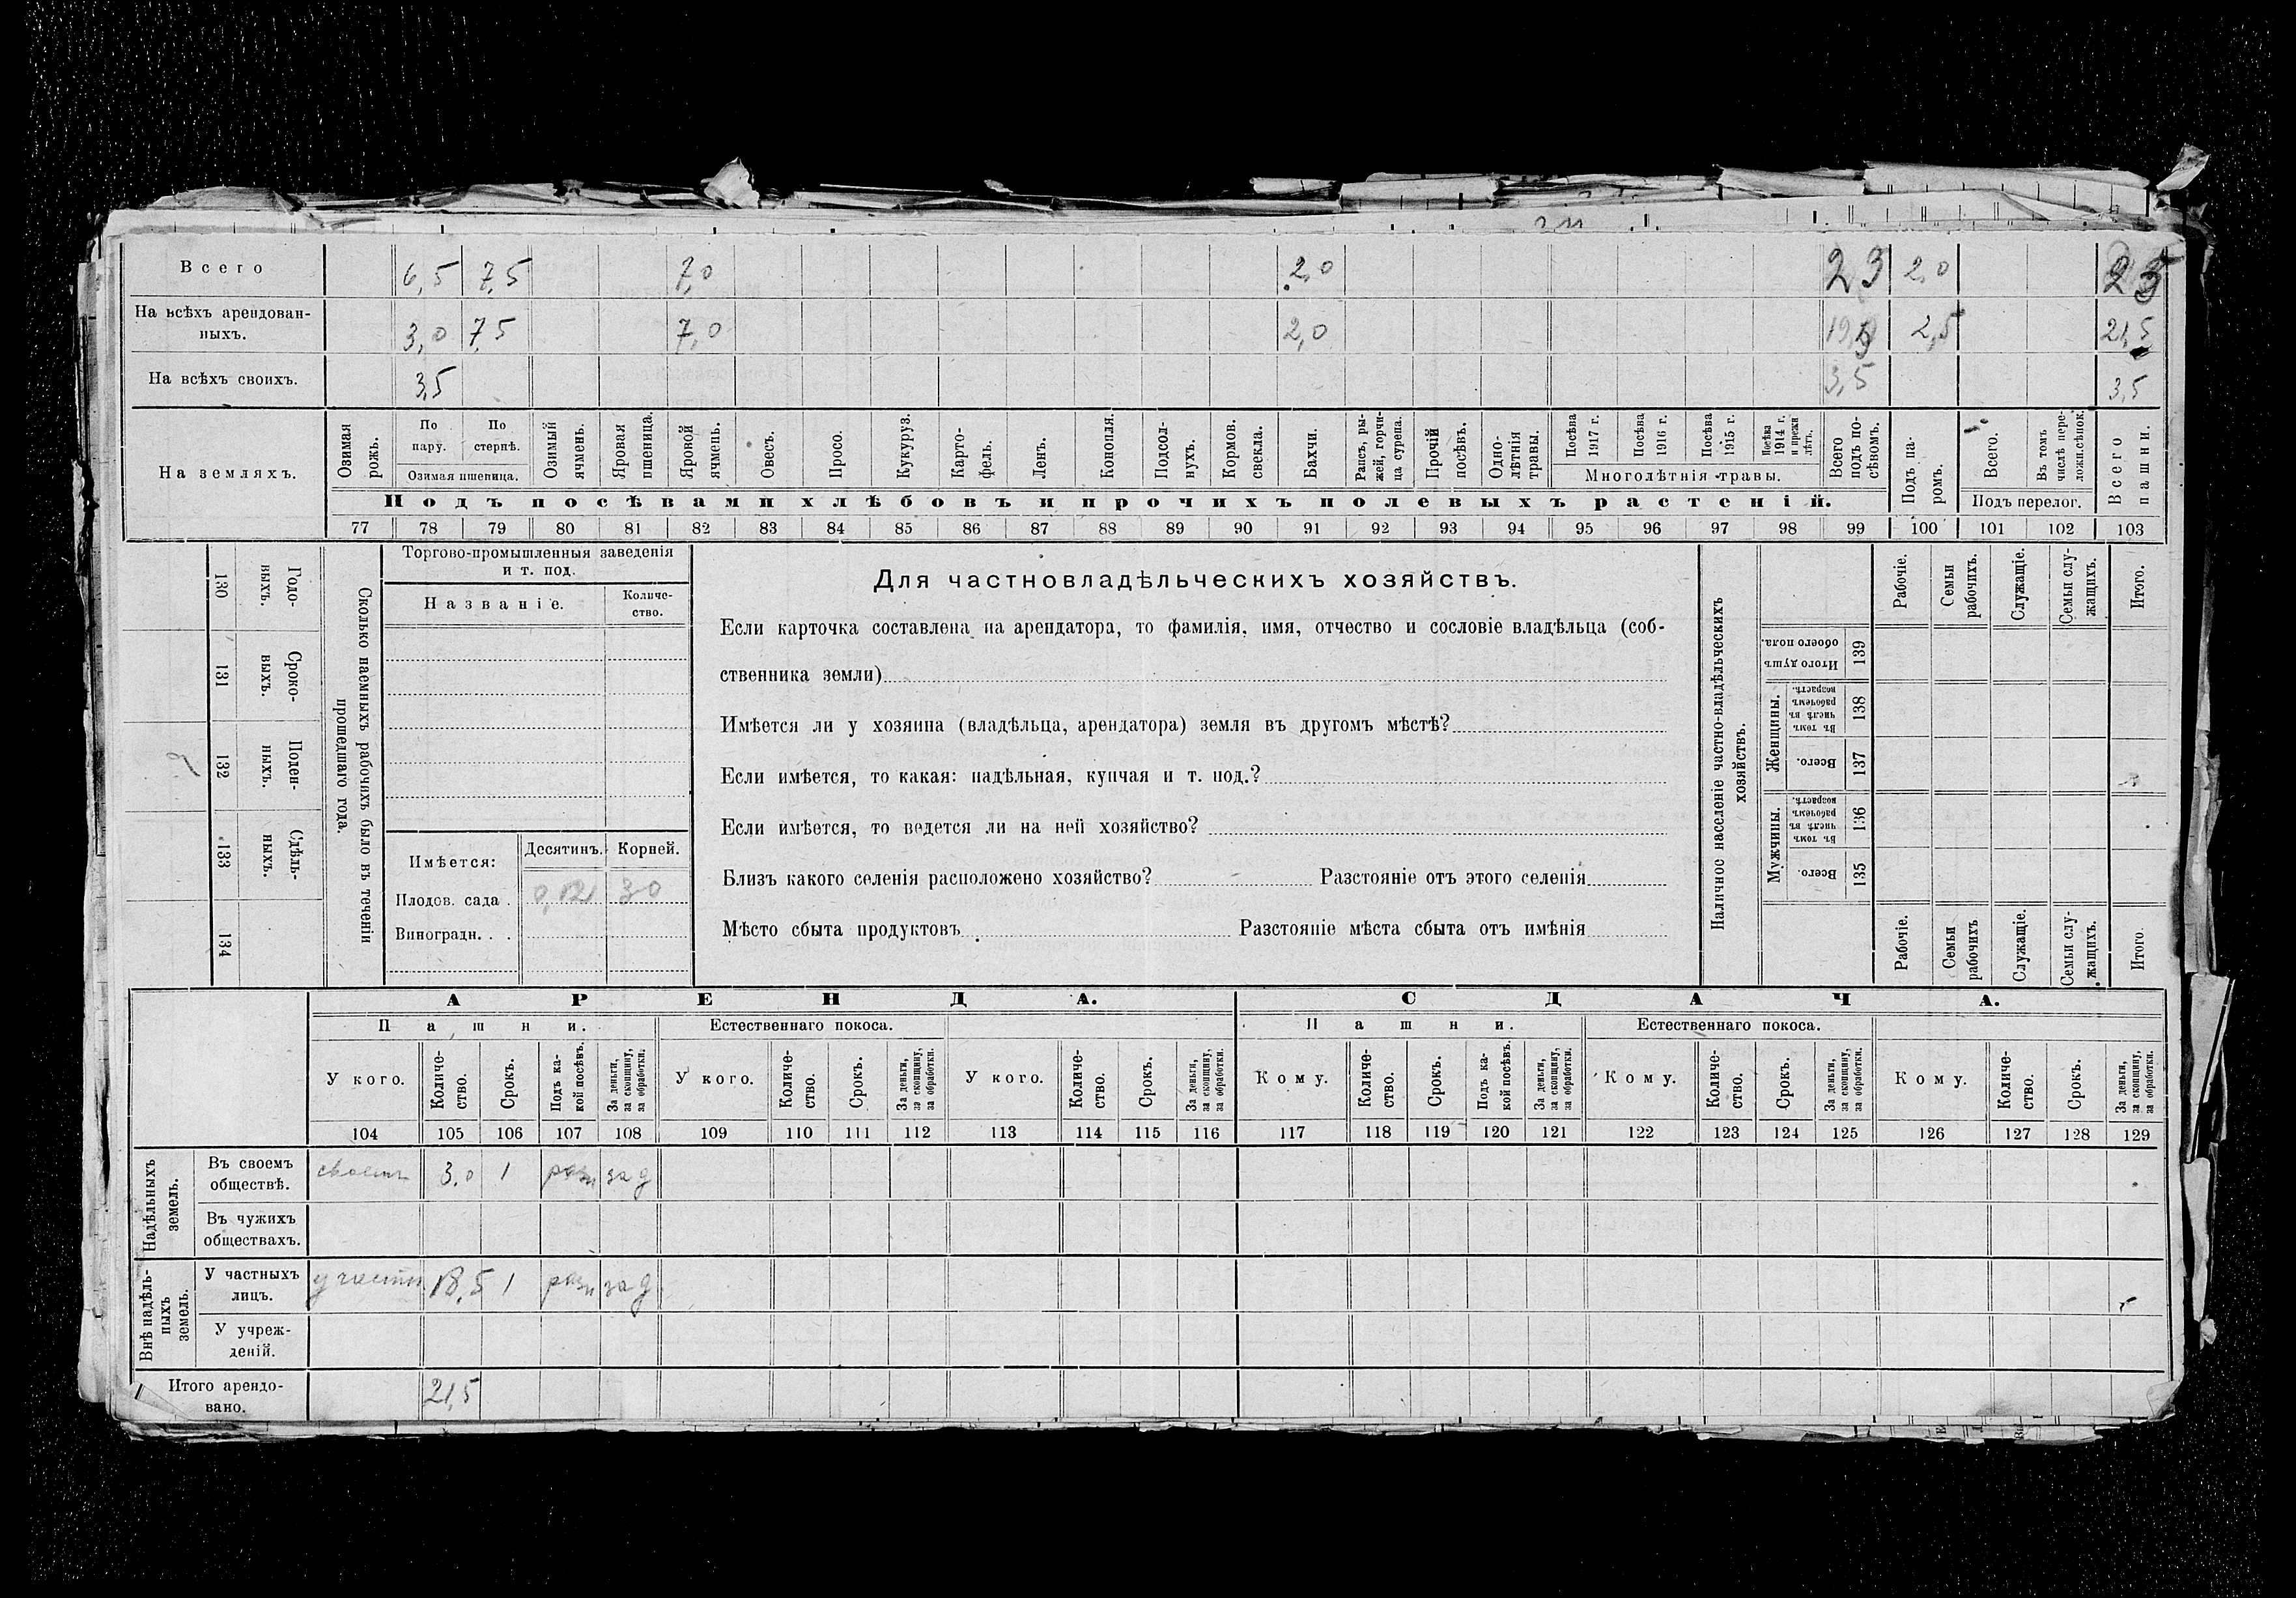 Всего 6,5 7,5 7,0 2,0 23 2,0 25
На всѣхъ арендован-
ныхъ. 3,0 7,5 7,0 2,0 2,5 21,5
На всѣхъ своихъ. 3,5 3,5 3,5
На земляхъ.
Озимая рожь.
По пару.
По стернѣ.
Озимая пшеница.
Озимый ячмень.
Яровая пшеница.
Яровой ячмень.
Овесъ.
Просо.
Кукуруз.
Карто-
фель.
Ленъ.
Конопля.
Подсол-
нухъ.
Кормов. свекла.
Бахчи.
Рапсъ, ры-
жей, горчи-
ца сурепа.
Прочій посѣвъ.
Одно-
лѣтнія травы.
Посѣва 1917 г.
Посѣва 1916 г.
Посѣва 1915 г.
Посѣва 1914 г. и прежн лѣтъ.
Многолѣтнія травы.
Всего подъ по-
сѣвомъ.
Подъ па-
ромъ.
Всего.
Въ томъ числѣ пере-
ложн.сѣнок.
Подъ перелог.
Всего пашни.
Подъ посѣвами хлѣбовъ и прочихъ полевыхъ растеній.
77 78 79 80 81 82 83 84 85 86 87 88 89 90 91 92 93 94 95 96 97 98 99 100 101 102 103
130 Годо-
выхъ.
131 Сроко-
выхъ.
132 Поден-
ныхъ.
133 Сдѣль-
ныхъ.
134
Сколько наемныхъ рабочихъ было въ теченіи
прошедшаго года.
Торгово-промышленныя заведенія
и т. под.
Названіе.
Количе-
ство.
Имѣется:
Десятинъ. Корней.
Плодов. сада . 30
Виноградн. . .
Для частновладѣльческихъ хозяйствъ.
Если карточка составлена на арендатора, то фамилія, имя, отчество и сословіе владѣльца (соб-
ственника земли)
Имѣется ли у хозяина (владѣльца, арендатора) земля въ другомъ мѣстѣ?
Если имѣется, то какая: надѣльная, купчая и т. под.?
Если имѣется, то ведется ли на ней хозяйство?
Близъ какого селенія расположено хозяйство? Разстояніе отъ этого селенія
Мѣсто сбыта продуктовъ Разстояніе мѣста сбыта отъ имѣнія
Наличное населеніе частно-владѣльческихъ
хозяйствъ.
Рабочіе.
Семьи рабочихъ.
Служащіе.
Семьи слу-
жащихъ.
Итого.
Итого душъ обоего пола. 139
Женщины.
Въ томъ числѣ въ рабочемъ возрастѣ. 138
Всего. 137
Мужчины.
Въ томъ числѣ въ рабочемъ возрастѣ. 136
Всего. 135
Рабочіе.
Семьи рабочихъ
Служащіе.
Семьи слу-
жащихъ.
Итого.
АРЕНДА. СДАЧА.
Пашни. Естественнаго покоса. Пашни. Естественнаго покоса.
У кого.
Количе-
ство.
Срокъ.
Подъ ка-
кой посѣвъ.
За деньги,
за скопщину,
за обработки.
У кого.
Количе-
ство.
Срокъ.
За деньги,
за скопщину,
за обработки.
У кого.
Количе-
ство.
Срокъ.
За деньги,
за скопщину,
за обработки.
Кому.
Количе-
ство.
Срокъ.
Подъ ка-
кой посѣвъ.
За деньги,
за скопщину,
за обработки.
Кому.
Количе-
ство.
Срокъ.
За деньги,
за скопщину,
за обработки.
Кому.
Количе-
ство.
Срокъ.
За деньги,
за скопщину,
за обработки.
104 105 106 107 108 109 110 111 112 113 114 115 116 117 118 119 120 121 122 123 124 125 126 127 128 129
Надѣльныхъ
земель.
Въ своемъ
обществѣ. 3.0 1 зад
Въ чужихъ
обществахъ.
Внѣ надѣль-
ныхъ
земель.
У частныхъ
лицъ. 18,5 1 зад
У учреж-
деній.
Итого арендо-
вано. 21,5